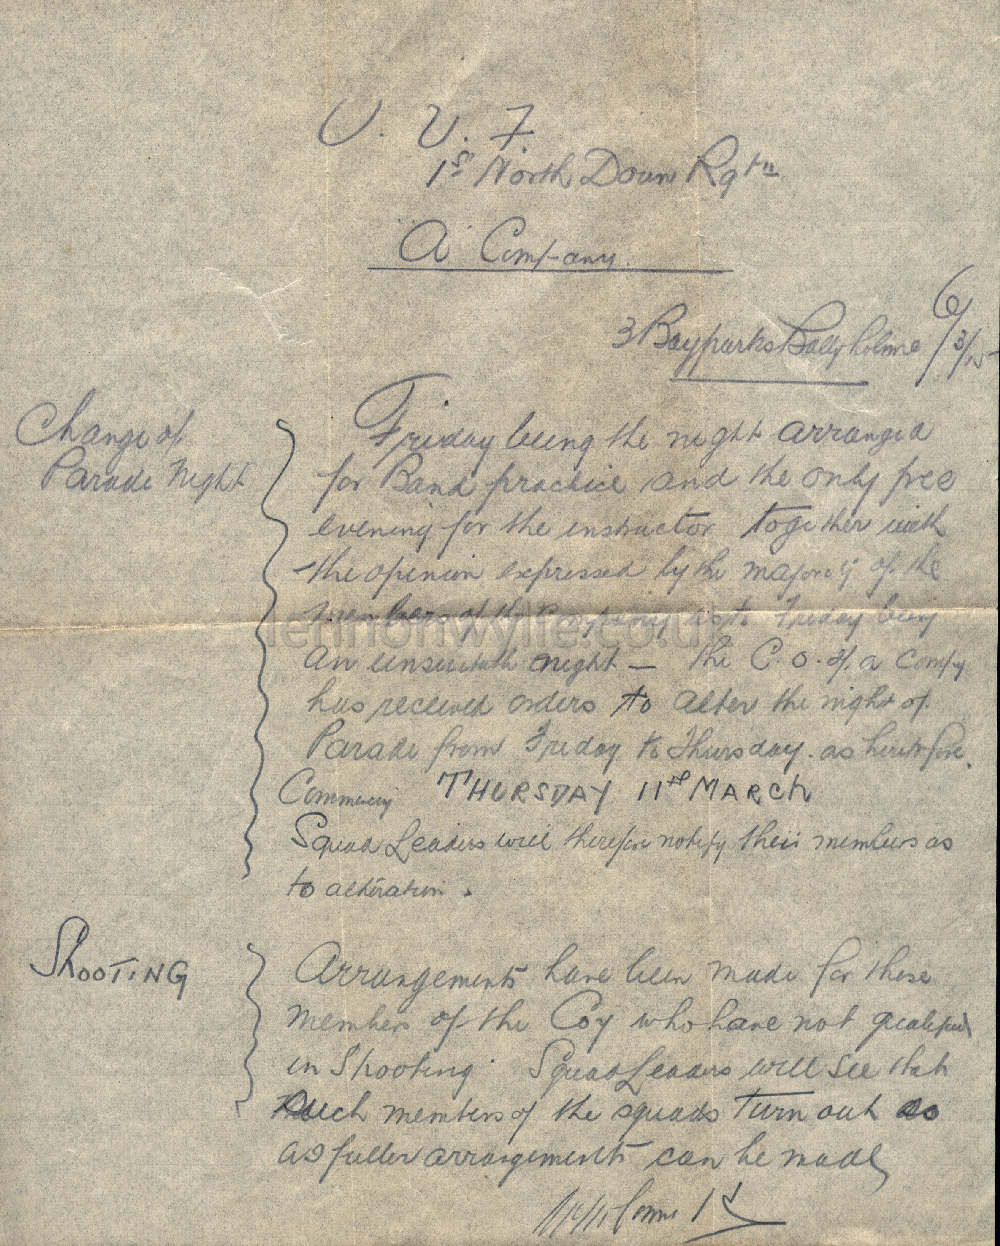 U. V. F.
1st North Down Rgtn
A Company.
3 Bayparks Ballyholme 6/3/15
Change of
Parade Night
Friday being the night arranged
for Band practice and the only free
evening for the instructor together with
the opinion expressed by the majority of the
members of the Company as to Friday being
lennonwylie.co.uk
an unsuitable night — the C.O. of A Compy
has received orders to alter the night of
Parade from Friday to Thursday. as heretofore.
Commency THURSDAY 11th MARCH
Squad Leaders will therefore notify their members as
to alteration.
SHOOTING
Arrangements have been made for those
members of the Coy who have not qualified
in Shooting. Squad Leaders will see that
such members of the squads turn out so
as fuller arrangements can be made